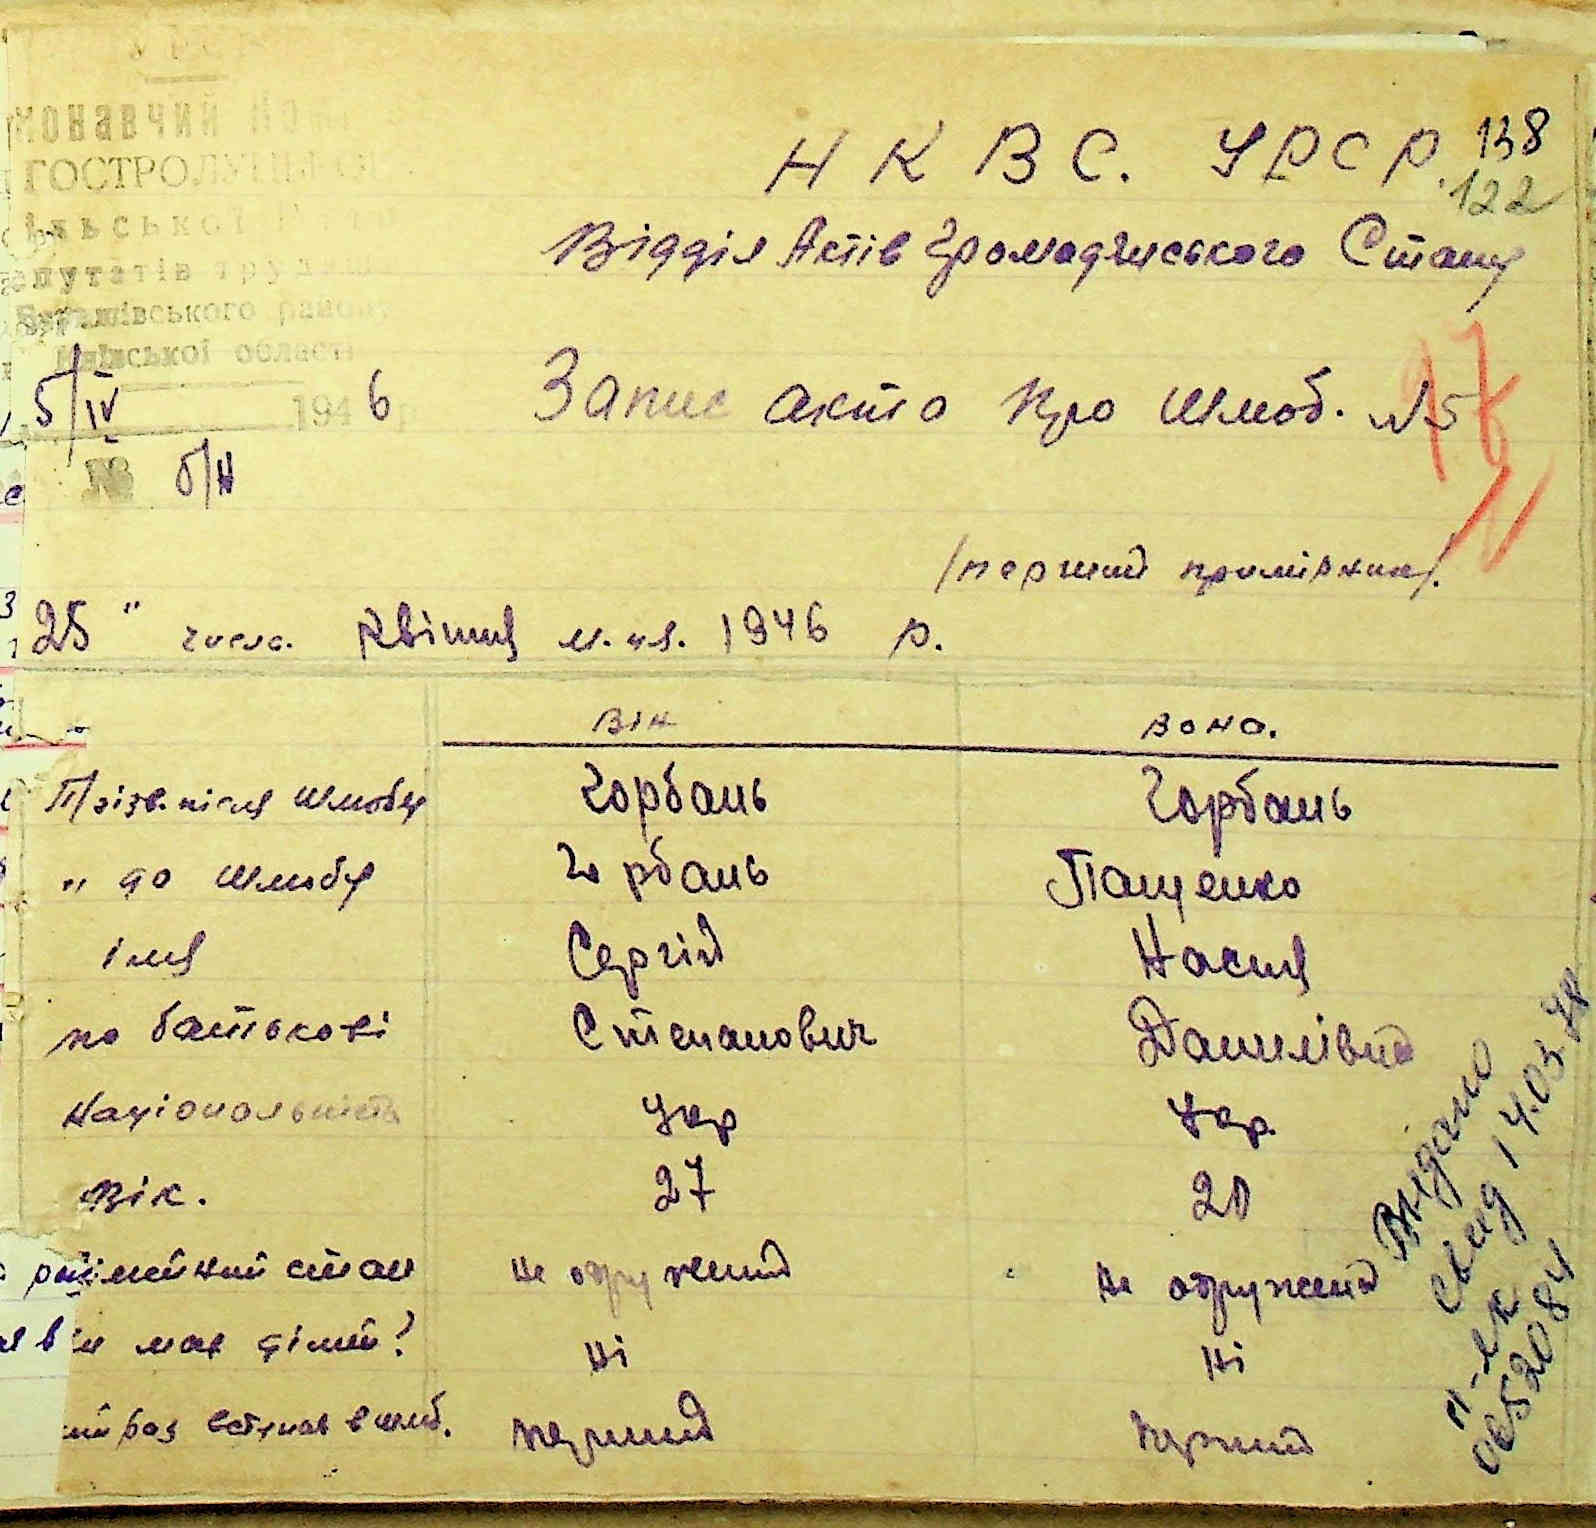 УРСР
конавчий Ком
ГОСТРОЛУЦЬКОЇ
ільської Ради
епутатів труд
Баришівського району
Київської області
5/IV 1946 р
№ б/н
Н К В С. У Р С Р. 138
122
Відділ Актів Громадянського Стану
Запис акта про шлюб. № 5
/перший примірник/.
25 " числа. квітня м-ця. 1946 р.
Він Вона.
Прізв. після шлюбу Горбань Горбань
" до шлюбу Горбань Пащенко
імя Сергій Настя
по батькові Степанович Данилівна
Національність Укр Укр.
Вік. 27 20
родімейний стан не одружений не одружений
чи має дітей? ні ні
ий раз вступає в шлюб. перший перший
Выдано
свид 14.03.78
II-ЯК
0652084